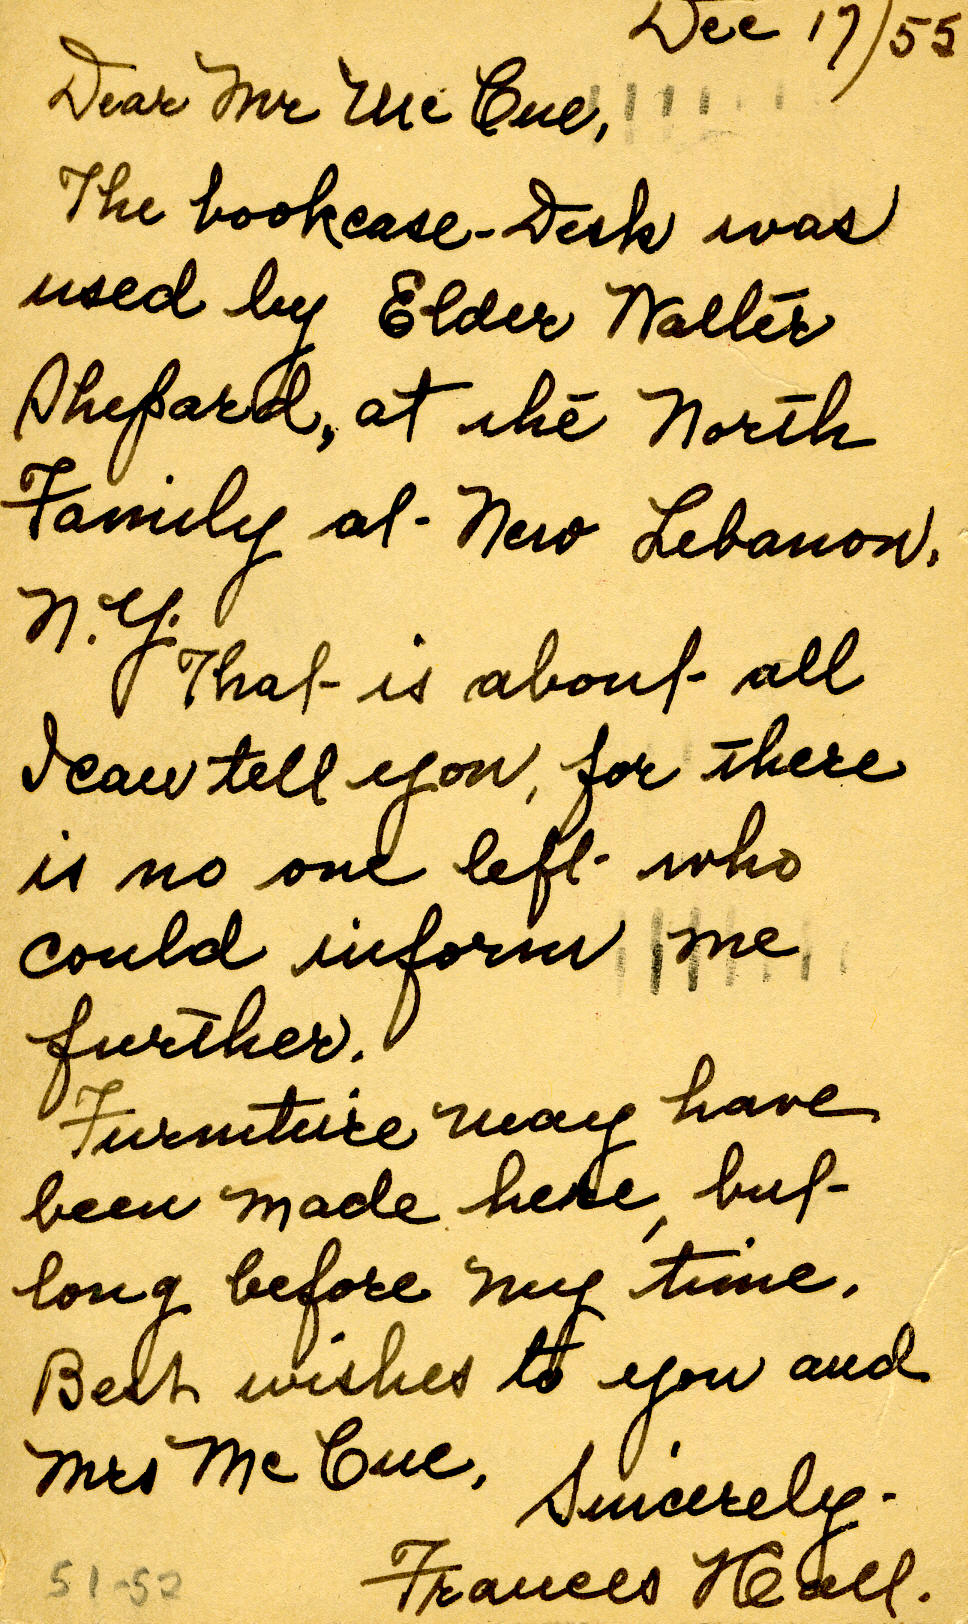 Dec 17/55
Dear Mr Mc Cue,
The bookcase-Desk was
used by Elder Walter
Shepard, at the North
Family at New Lebanon,
N.Y.
That is about all
I can tell you, for there
is no one left who
could inform me
further.
Furniture may have
been made here, but
long before my time.
Best wishes to you and
Mrs Mc Cue.
Sincerely-
Frances Hall.
51-52